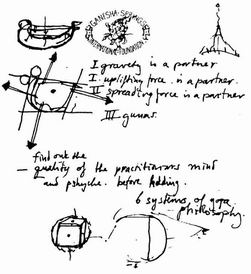 GANESHA·SPRINGS
INTERNATIONAL·FOUNDATION
I gravety is a partner
I. uplifting force. is a partner.
II spreading force is a partner
III gunas.
find out the
— quality of the practitianars mind
and pshyche. before Adding.
6 systems of yoga
philosophy